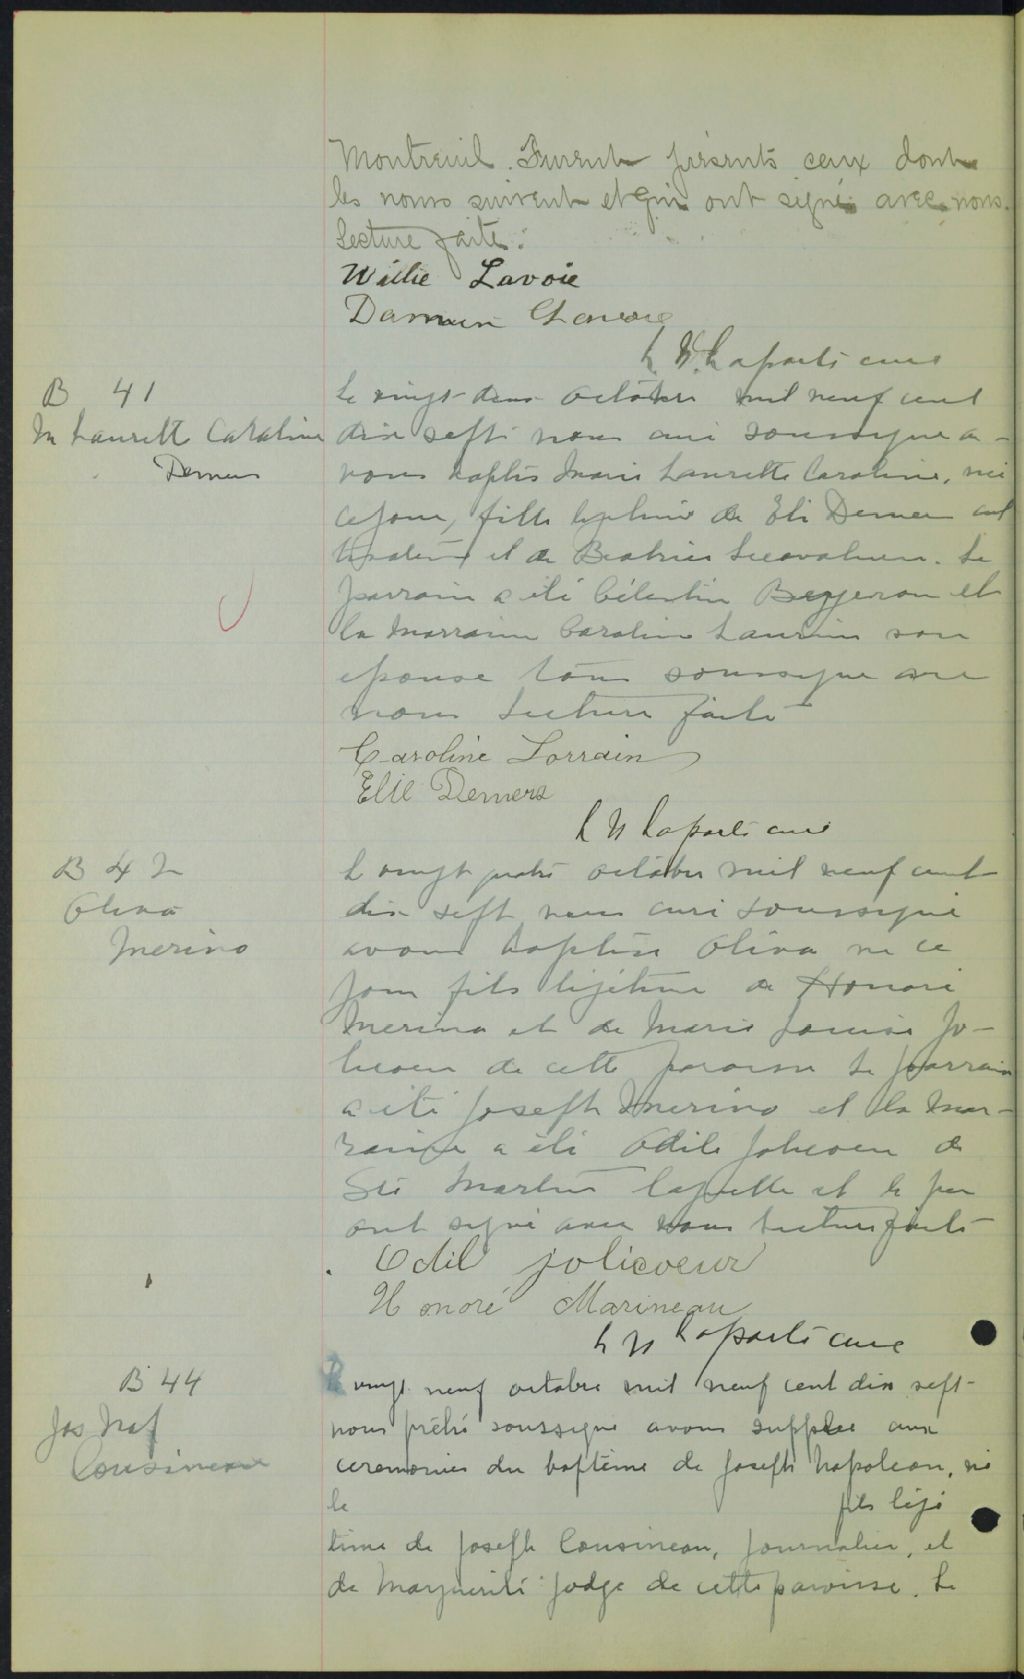 Montreuil. Furent présents ceux dont
les noms suivent et qui ont signé avec nous.
Lecture faite.
Willie Lavoie
Damien
L N Laporte curé
B 41
M Laurette Caroline
Demers
Le vingt deux octobre mil neuf cent
dix sept nous curé soussigné a-
vons baptisé Marie Laurette Caroline, née
ce jour, fille légitime de Eli Demers cul
tivateur et de Beatrice Lecavalier. Le
parrain a été Célestin Bergeron et
la marraine Caroline Laurin son
epouse tous soussigné avec
nous Lecture faite
Caroline Lorrain
Elie Demers
L N Laporte curé
B 42
Oliva
Merino
Le vingt quatre octobre mil neuf cent
dix sept nous curé soussigné
avons baptisé Oliva né ce
jour fils légitime de Honoré
Merino et de Marie Louise Jo-
licoeur de cette paroisse Le parrain
a été Joseph Merino et la mar-
raine a été Odile Jolicoeur de
St Martin laquelle et le père
ont signé avec nous Lecture faite
Odil jolicoeur
Honoré Marineau
L N Laporte curé
B 44
Jos Nap
Cousineau
Le vingt neuf octobre mil neuf cent dix sept
nous prêtre soussigné avons supplée aux
ceremonies du baptême de Joseph Napoleon, né
le fils légi
time de Joseph Cousineau, journalier, et
de Marguerite Jodge de cette paroisse. Le